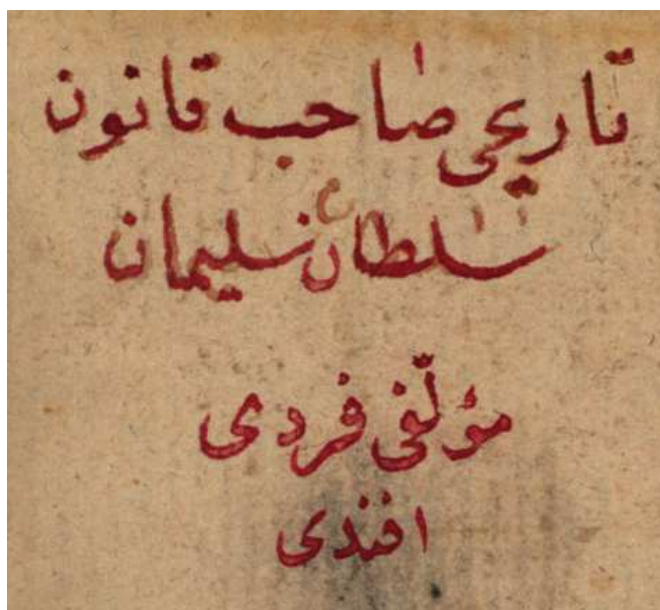 تاريخى صاحب قانون
سلطان سليمان
مؤلّفى فردى
افندى